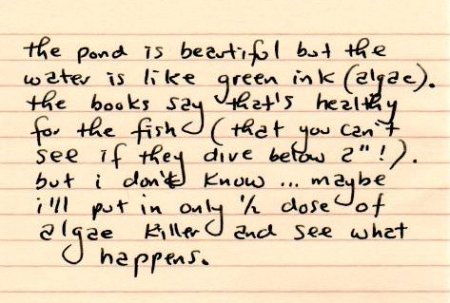 the pond is beautiful but the
water is like green ink (algae).
the books say that's healthy
for the fish (that you can't
see if they dive below 2"!).
but i don't know ... maybe
i'll put in only ½ dose of
algae killer and see what
happens.